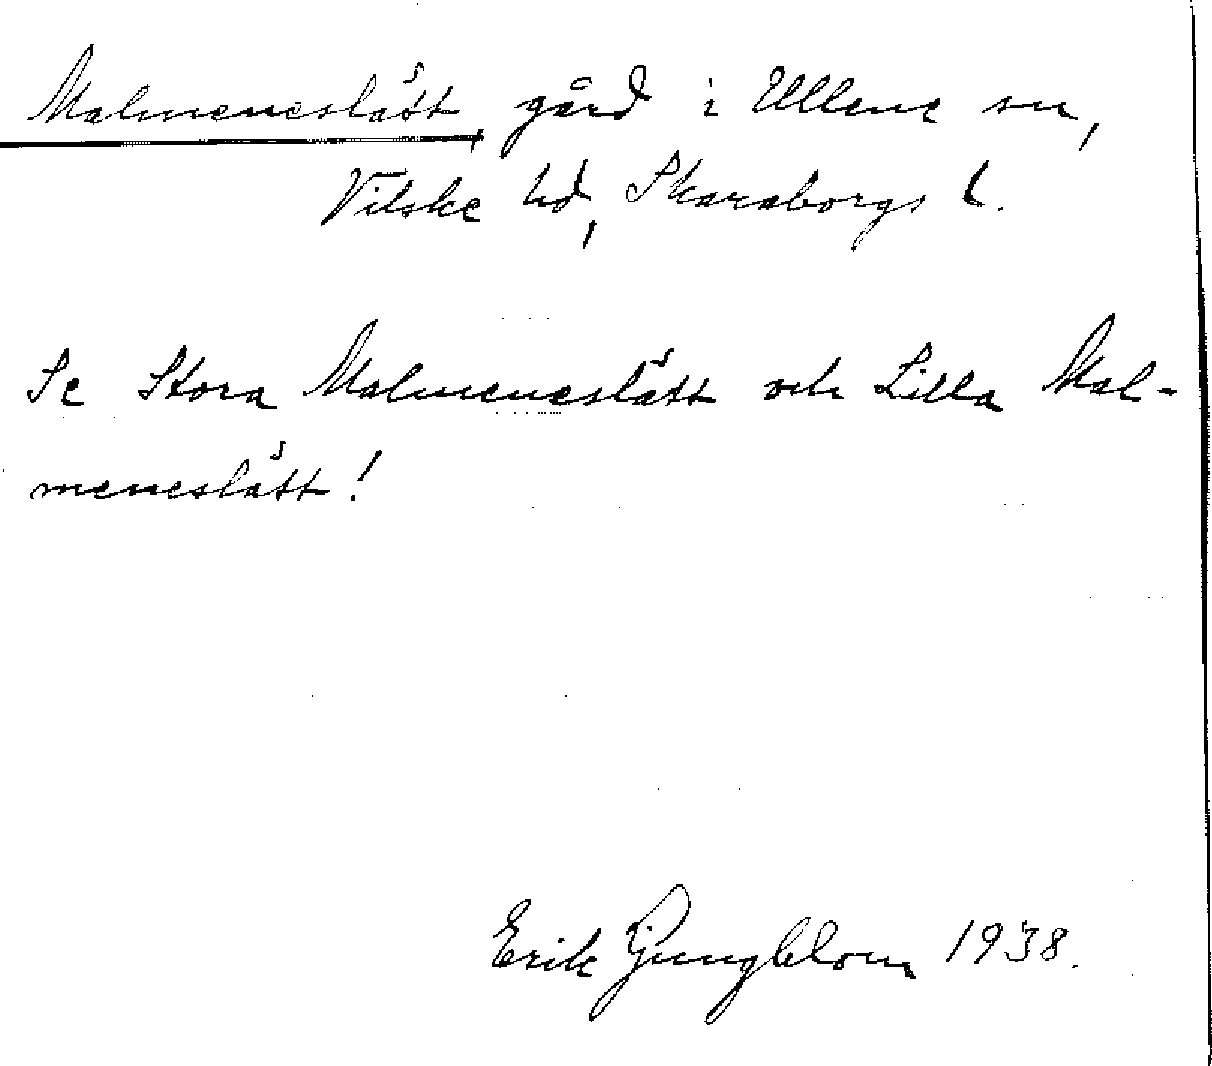 Malmeneslätt gård i Ullene sn,
Vilske hd, Skaraborgs l.
Se Stora Malmeneslätt och Lilla Mal-
meneslätt!
Erik Ljungblom 1938.